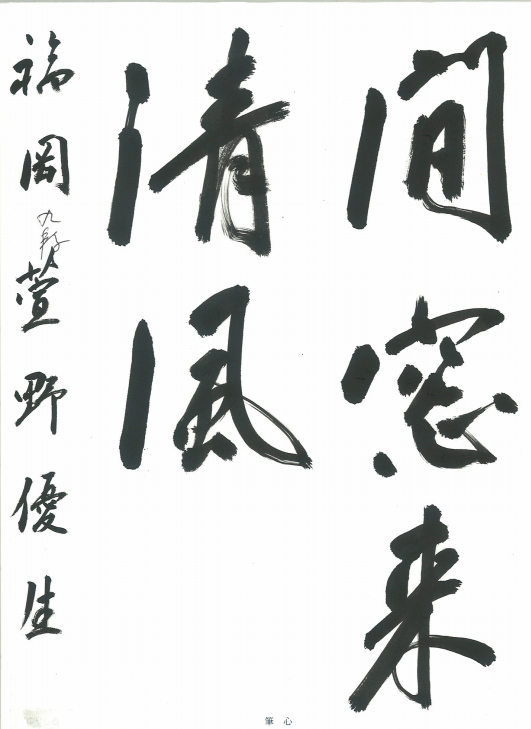 間窓来
清風
福岡萱野優生
心筆